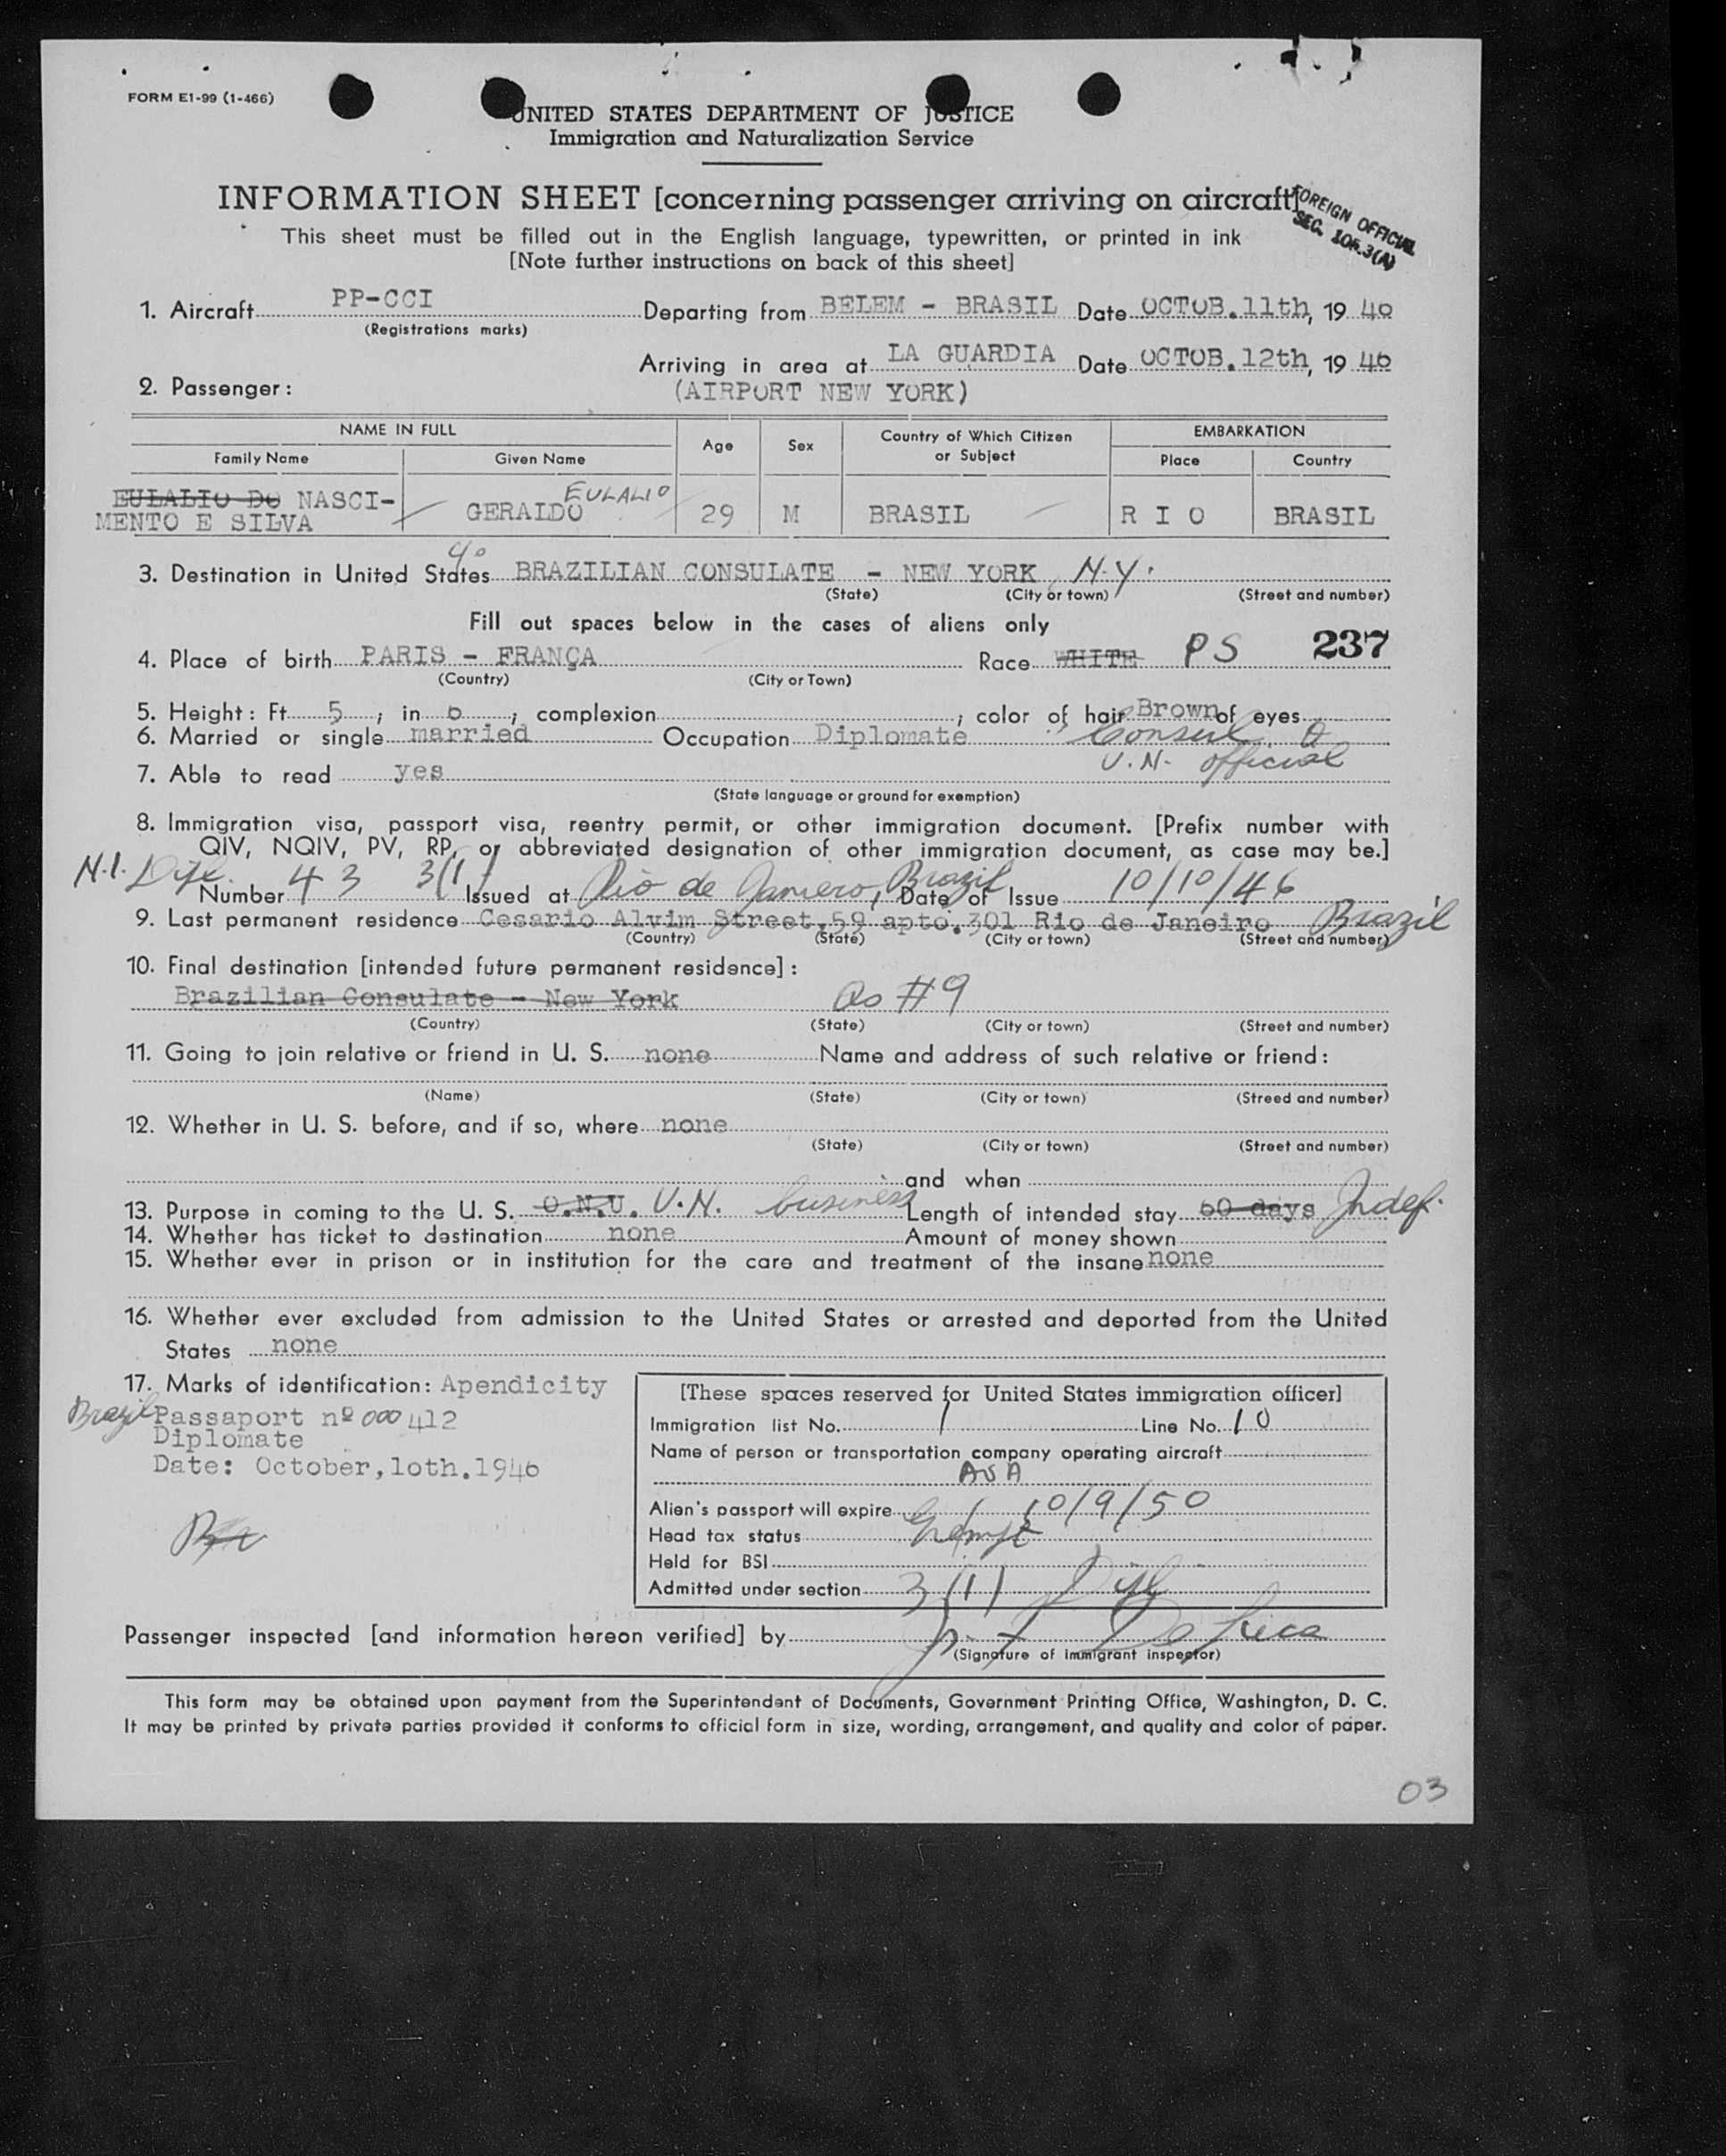 FORM E1-99 (1-466)
UNITED STATES DEPARTMENT OF JUSTICE
Immigration and Naturalization Service
INFORMATION SHEET [concerning passenger arriving on aircraft]
FOREIGN OFFICIAL
SEC.
This sheet must be filled out in the English language, typewritten, or printed in ink
[Note further instructions on back of this sheet]
1. Aircraft PP-CCI Departing from BELEM - BRASIL Date OCTOB.11th, 19 46
(Registrations marks)
Arriving in area at LA GUARDIA Date OCTOB.12th, 19 46
2. Passenger: (AIRPORT NEW YORK)
NAME IN FULL Age Sex Country of Which Citizen or Subject EMBARKATION
Family Name Given Name Place Country
EULALIO DO NASCI- EULALIO
MENTO E SILVA GERALDO 29 M BRASIL R I O BRASIL
3. Destination in United States BRAZILIAN CONSULATE - NEW YORK, N.Y.
(State) (City or town) (Street and number)
Fill out spaces below in the cases of aliens only
4. Place of birth PARIS - FRANÇA Race WHITE PS 237
(Country) (City or Town)
5. Height: Ft 5 ; in 6 ; complexion ; color of hair Brown of eyes
6. Married or single married Occupation Diplomate Consul
U.N. official
7. Able to read yes
(State language or ground for exemption)
8. Immigration visa, passport visa, reentry permit, or other immigration document. [Prefix number with
QIV, NQIV, PV, RP, or abbreviated designation of other immigration document, as case may be.]
N.I. Dipl.
Number 43 3(1) Issued at Rio de Janiero, Brazil Date of Issue 10/10/46
9. Last permanent residence Cesario Alvim Street,59 apto.301 Rio de Janeiro Brazil
(Country) (State) (City or town) (Street and number)
10. Final destination [intended future permanent residence]:
Brazilian Consulate - New York as #9
(Country) (State) (City or town) (Street and number)
11. Going to join relative or friend in U. S. none Name and address of such relative or friend:
(Name) (State) (City or town) (Streed and number)
12. Whether in U. S. before, and if so, where none
(State) (City or town) (Street and number)
and when
13. Purpose in coming to the U. S. O.N.U. U.N. business Length of intended stay 60 days Indef.
14. Whether has ticket to destination none Amount of money shown
15. Whether ever in prison or in institution for the care and treatment of the insane none
16. Whether ever excluded from admission to the United States or arrested and deported from the United
States none
17. Marks of identification: Apendicity
Brazil Passaport nº 000412
Diplomate
Date: October,1oth.1946
[These spaces reserved for United States immigration officer]
Immigration list No. 1 Line No. 10
Name of person or transportation company operating aircraft
Alien's passport will expire 10/9/50
Head tax status Exempt
Held for BSI
Admitted under section 3(1) Dipl
Passenger inspected [and information hereon verified] by
(Signature of immigrant inspector)
This form may be obtained upon payment from the Superintendent of Documents, Government Printing Office, Washington, D. C.
It may be printed by private parties provided it conforms to official form in size, wording, arrangement, and quality and color of paper.
03